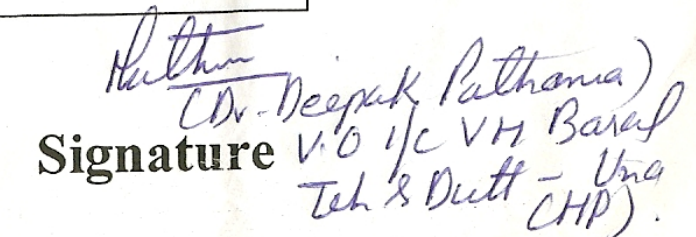 (Dr. Deepak Pathania)
Signature V.O I/C VH Basal
Teh & Distt - Una
(HP).